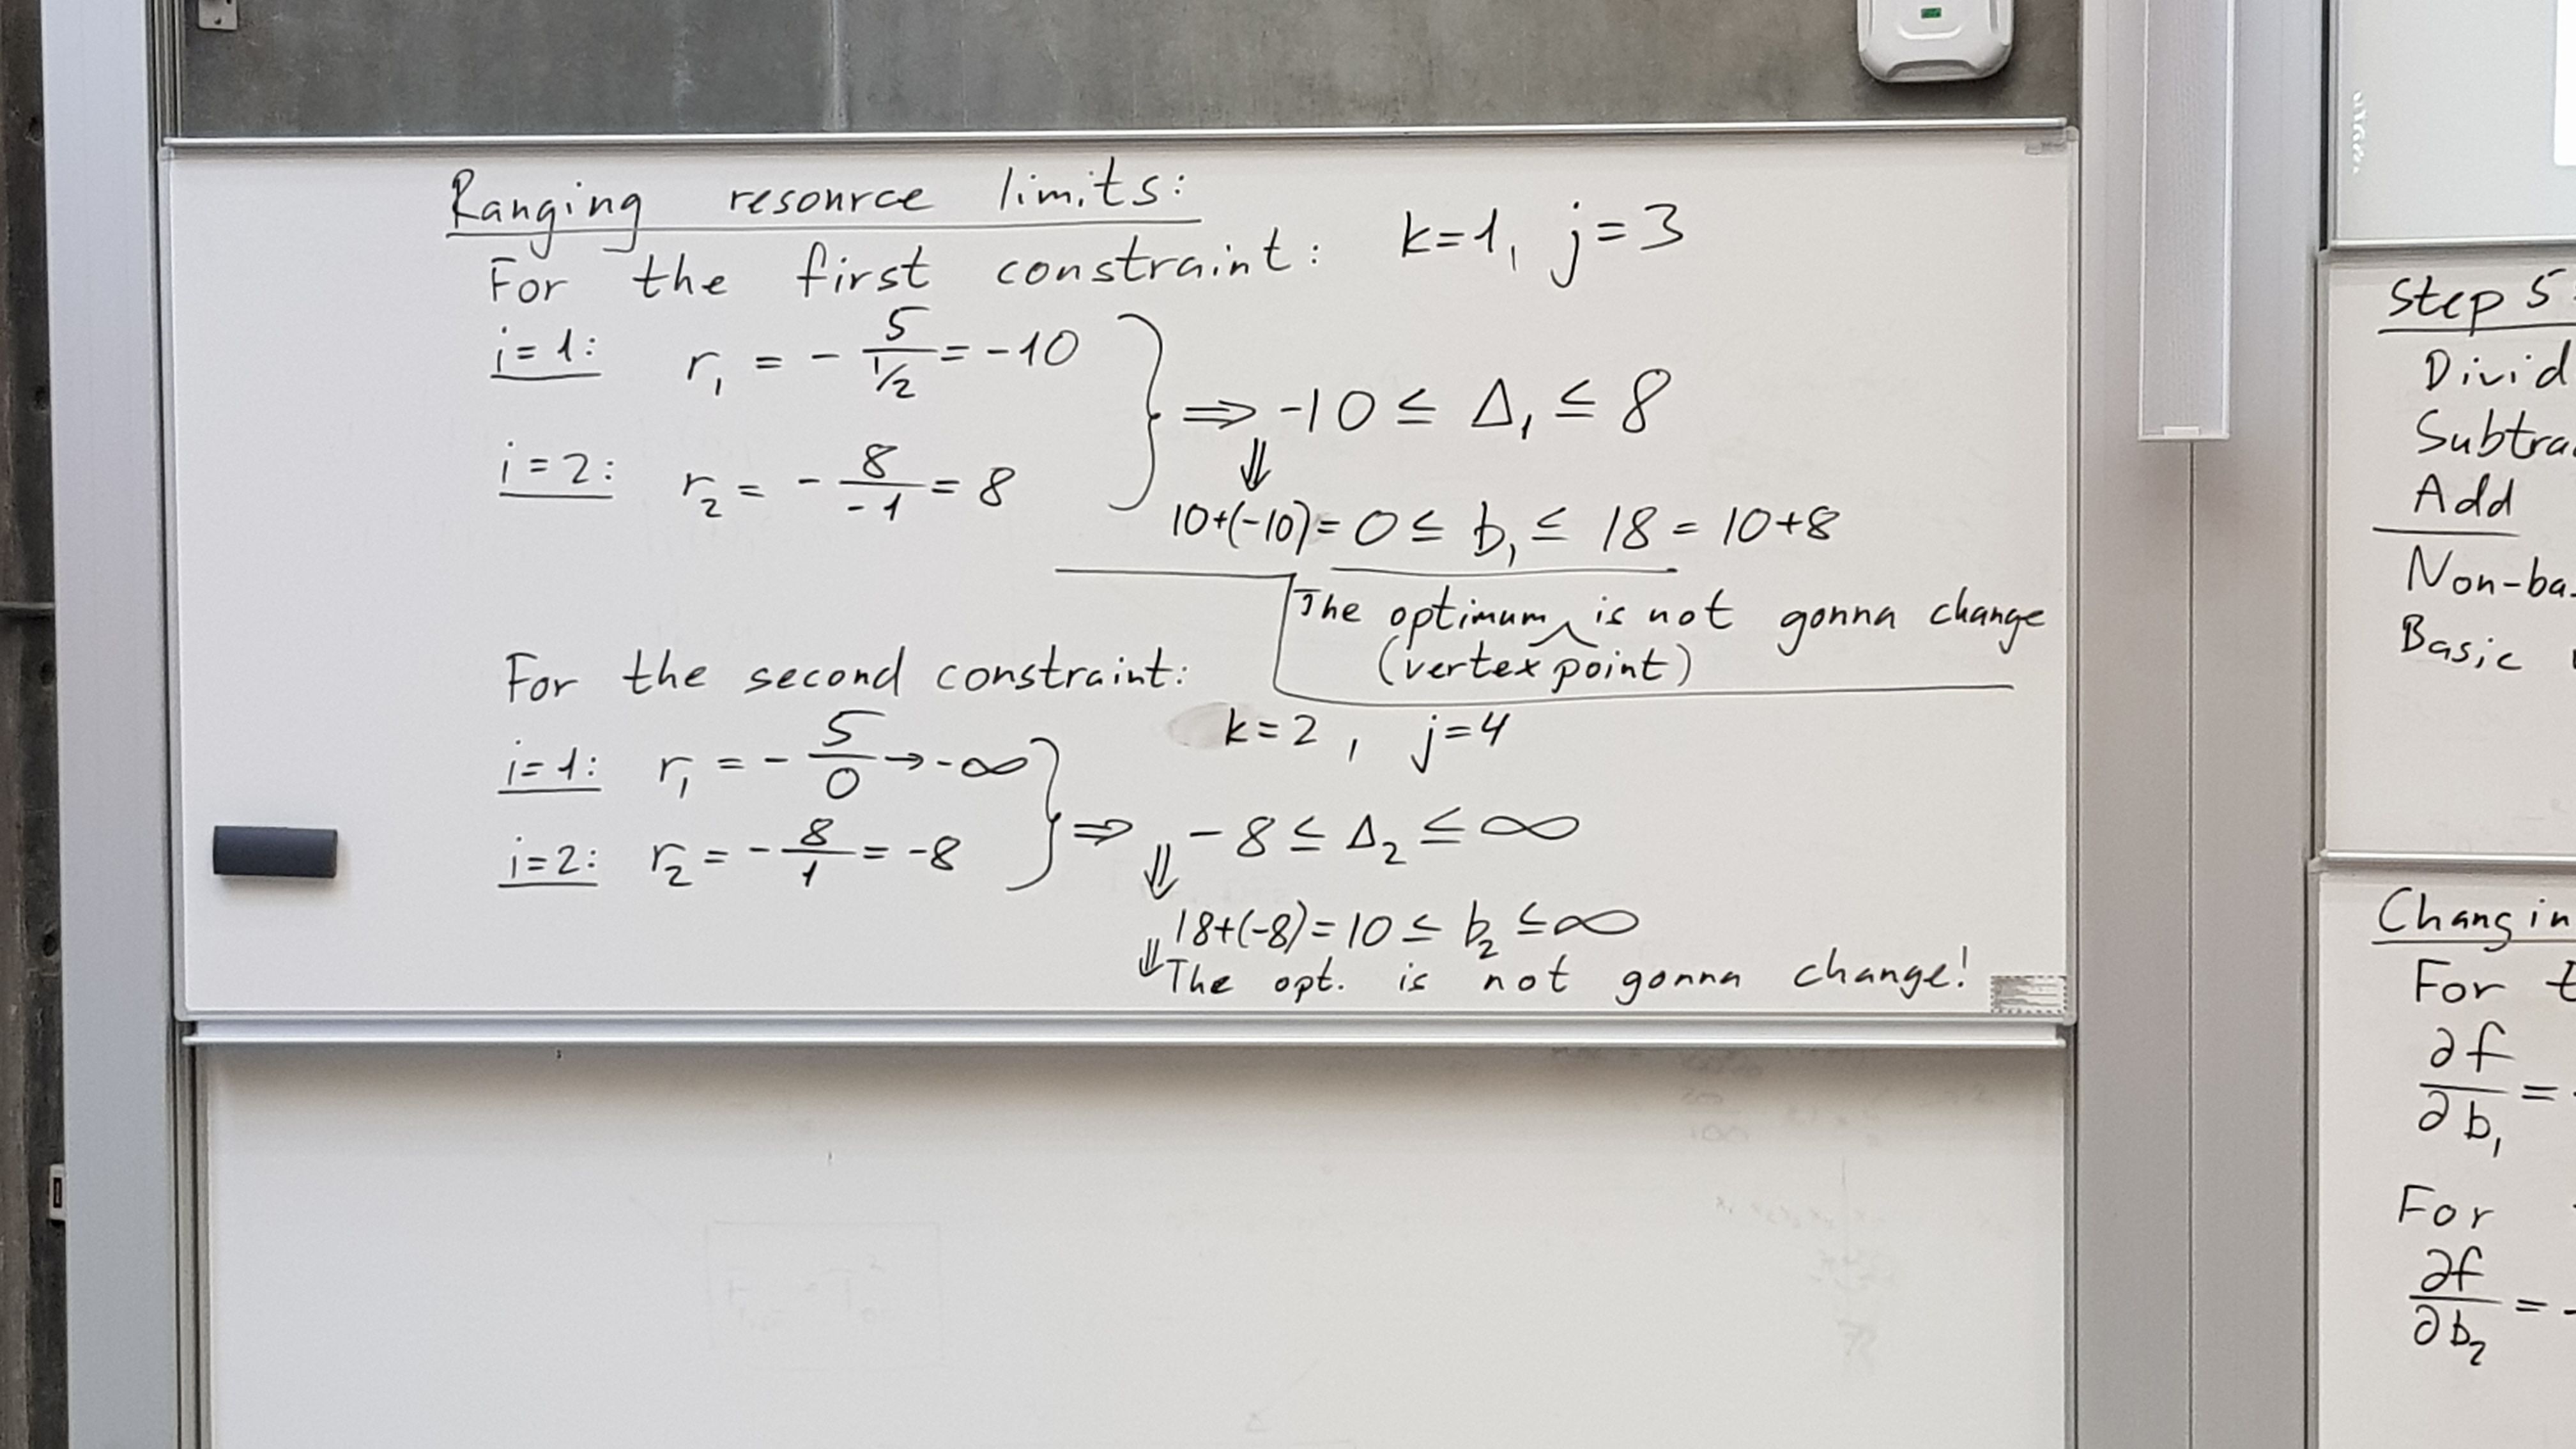 Ranging resource limits:
For the first constraint: k=1, j=3
i=1: r₁ = - 5/(1/2) = -10
i=2: r₂ = - 8/-1 = 8
⇒ -10 ≤ Δ₁ ≤ 8
⇓
10+(-10)= 0 ≤ b₁ ≤ 18 = 10+8
The optimum is not gonna change
(vertex point)
For the second constraint:
k=2, j=4
i=1: r₁ = - 5/0 → -∞
i=2: r₂ = - 8/1 = -8
⇒ -8 ≤ Δ₂ ≤ ∞
⇓
18+(-8)=10 ≤ b₂ ≤ ∞
⇓ The opt. is not gonna change!
Step 5
Divid
Subtra
Add
Non-ba
Basic
Changin
For t
∂f/∂b₁ =
For
∂f/∂b₂ = -